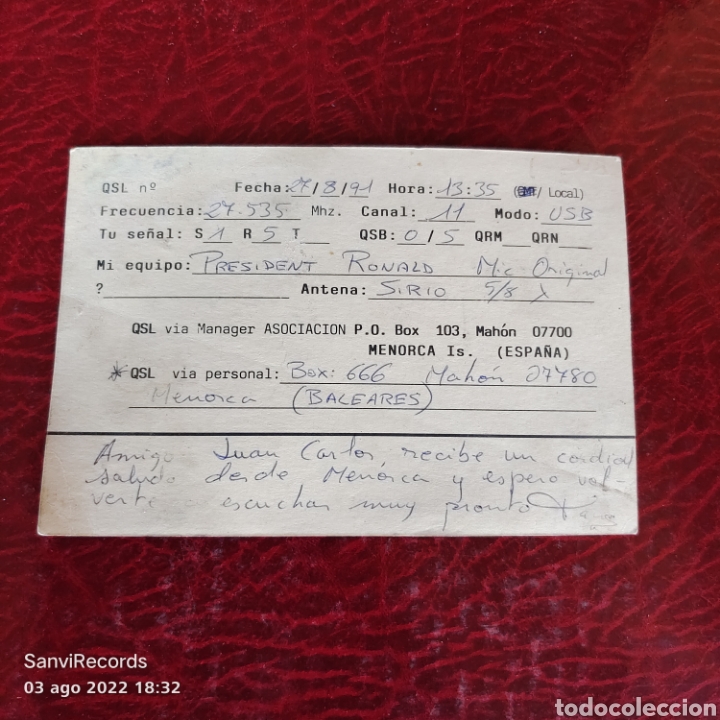 QSL nº Fecha: 27/8/91 Hora: 13:35 (GMT/ Local)
Frecuencia: 27.535 Mhz. Canal: 11 Modo: USB
Tu señal: S 1 R 5 T__ QSB: 0 / 5 QRM__ QRN__
Mi equipo: PRESIDENT RONALD Mic Original
?__________ Antena: SIRIO 5/8 λ
QSL via Manager ASOCIACION P.O. Box 103, Mahón 07700
MENORCA Is. (ESPAÑA)
*QSL via personal: Box: 666 Mahón 07780
Menorca (BALEARES)
Amigo Juan Carlos recibe un cordial
saludo desde Menorca y espero vol-
verte a escuchar muy pronto
SanviRecords
03 ago 2022 18:32
todocoleccion